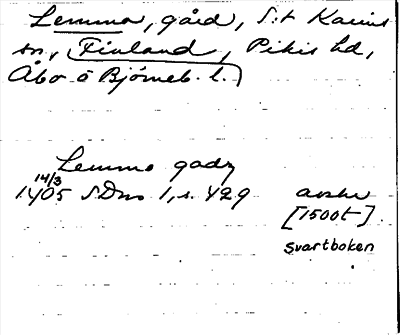 Lemmo, gård, S:t Karins
sn, Finland, Pikis hd,
Åbo o Björneb. l.
Lemmo gadz
14/3
1405 SDns 1, s. 429 avskr
[1500t]
svartboken